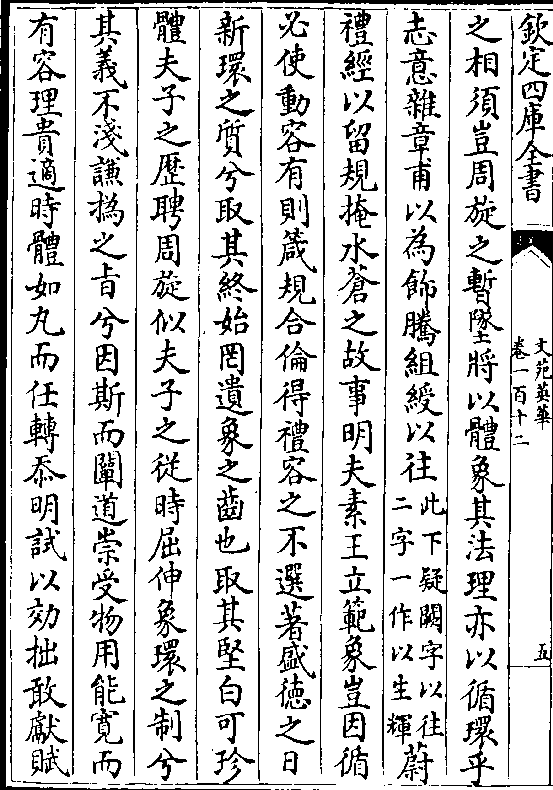 欽定四庫全書
文苑英華
卷一百十二
五
之相須豈周旋之暫墜將以體象其法理亦以循環乎
志意雜章甫以為飾騰組綬以往此下疑闕字以往二字一作以生輝蔚
禮經以留規掩水蒼之故事明夫素王立範象豈因循
必使動容有則箴規合倫得禮容之不選著盛德之日
新環之質兮取其終始罔遺象之齒也取其堅白可珍
體夫子之歷聘周旋似夫子之從時屈伸象環之制兮
其義不淺謙撝之㫖兮因斯而闡道崇受物用能寛而
有容理貴適時體如丸而任轉忝明試以効拙敢獻賦